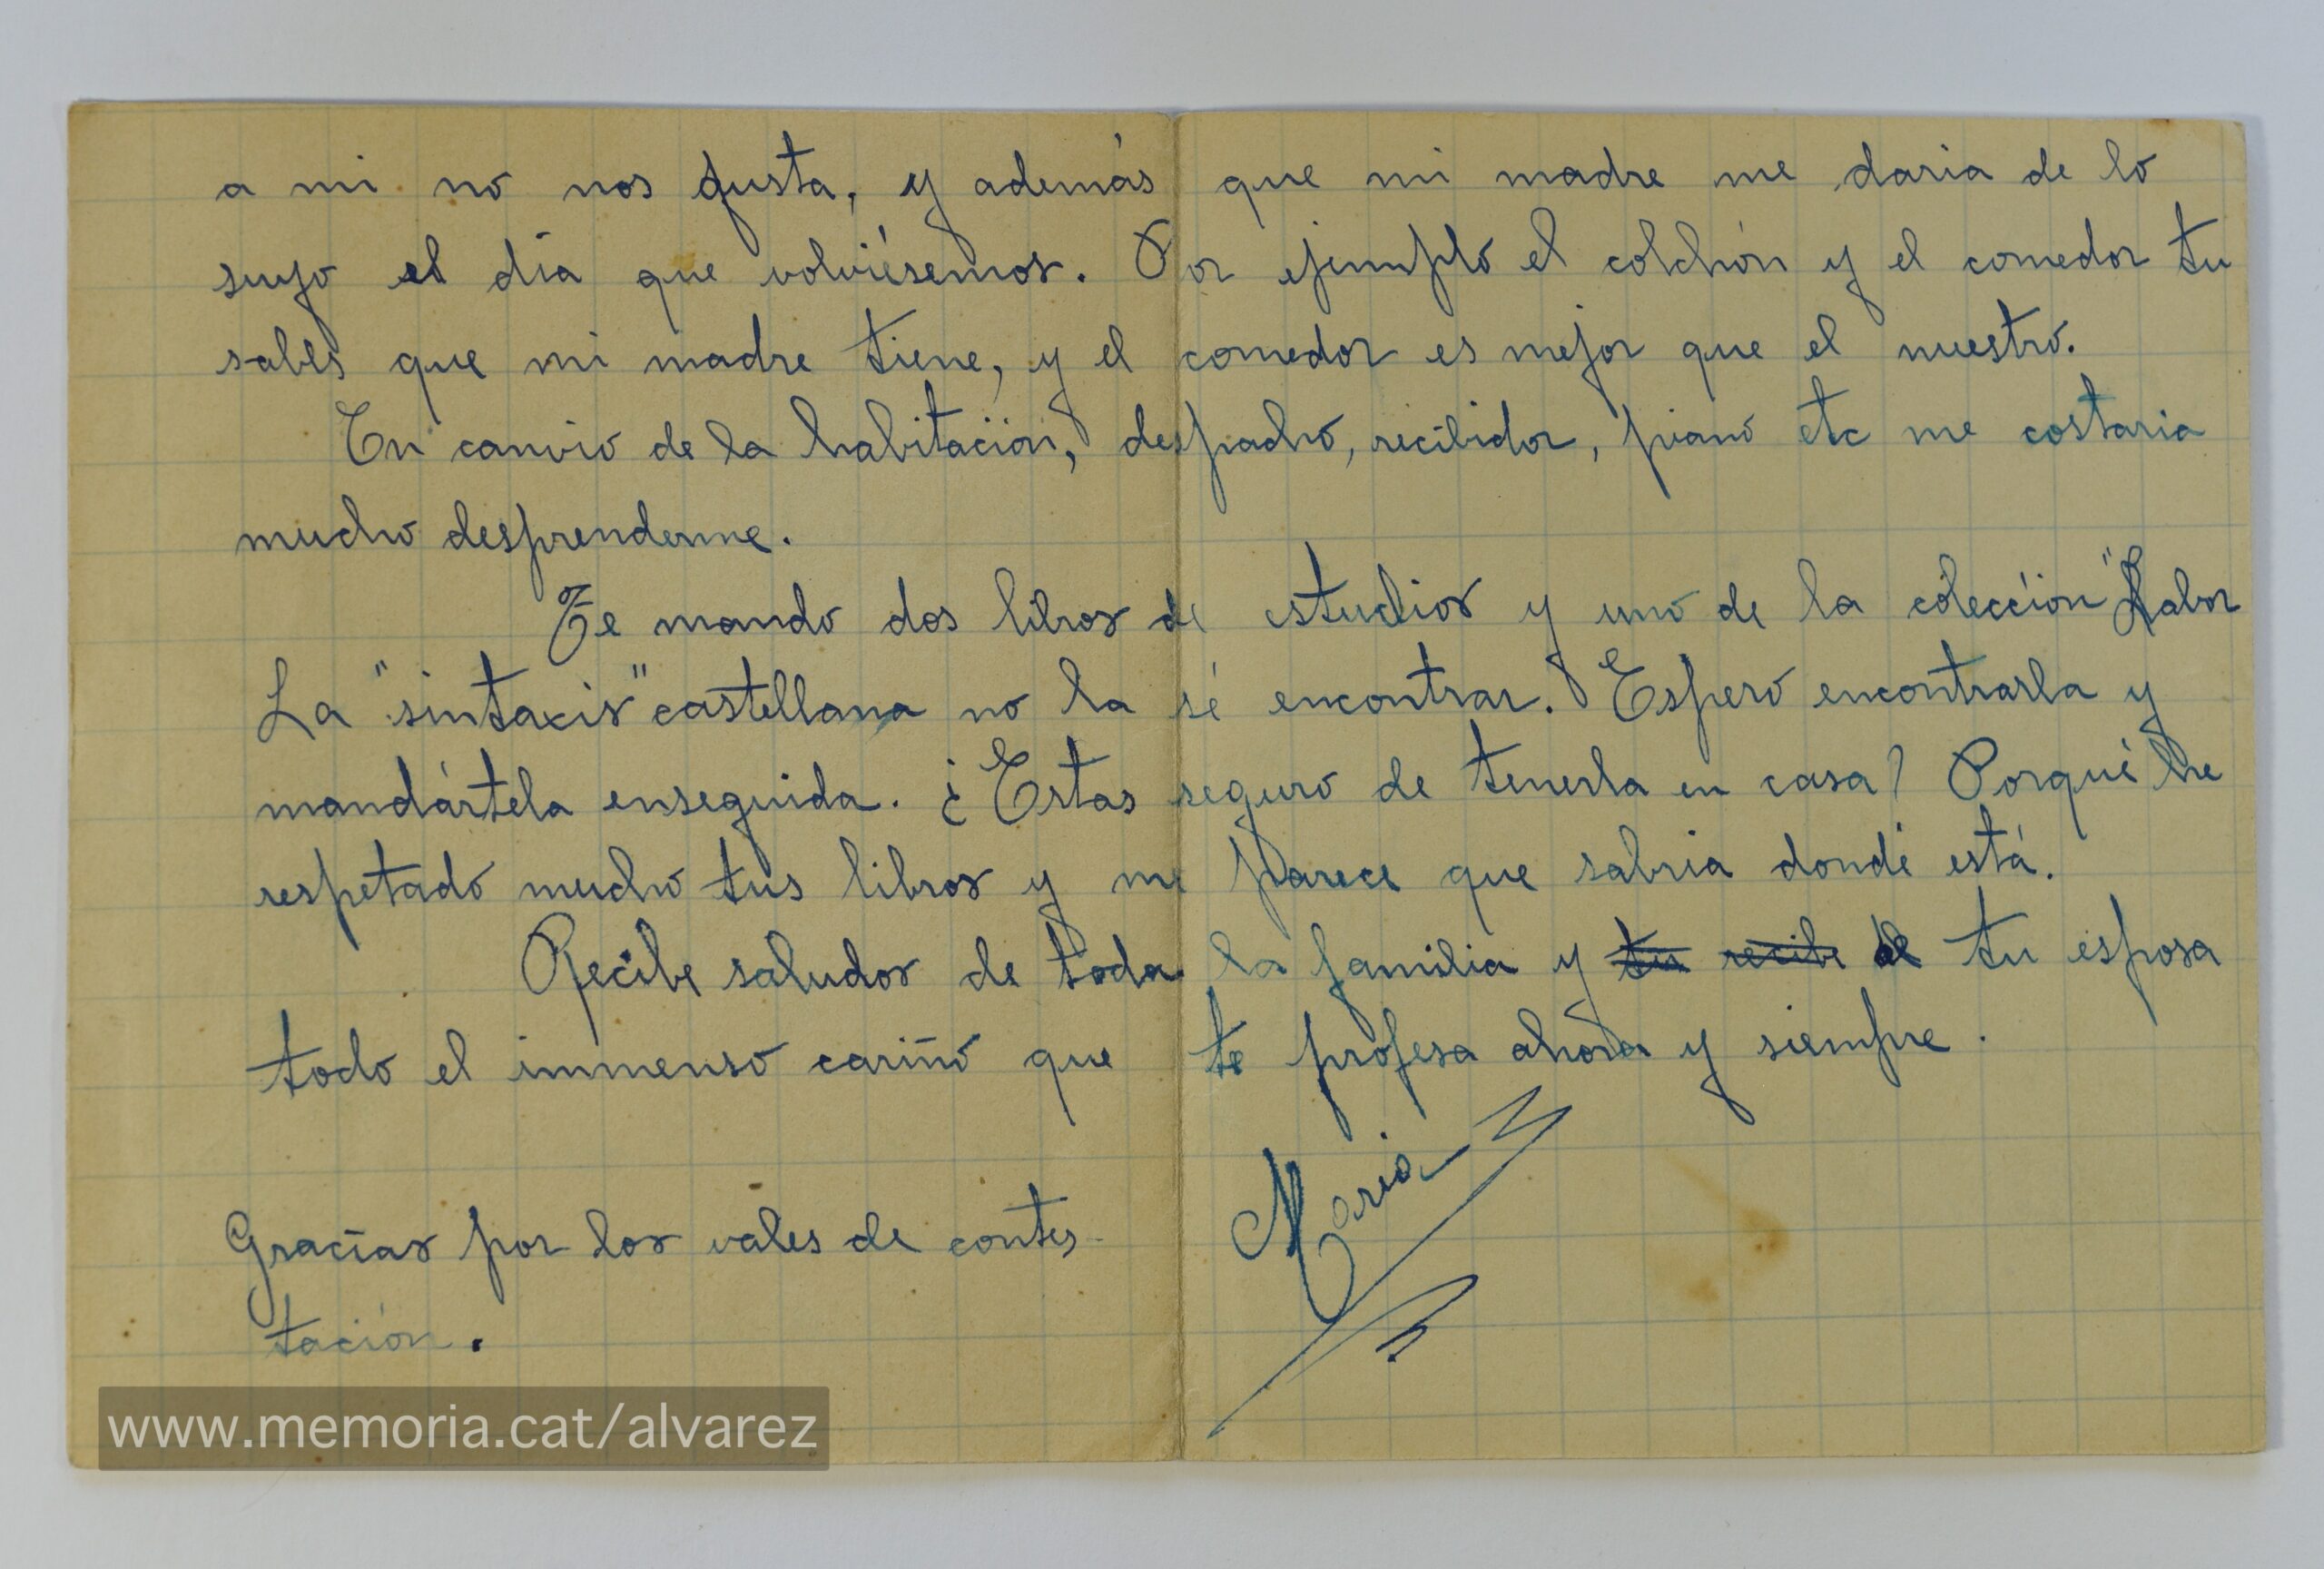 a mi no nos gusta, y además que mi madre me daria de lo
suyo el día que volviésemos. Por ejemplo el colchón y el comedor tu
sabes que mi madre tiene, y el comedor es mejor que el nuestro.
En canvio de la habitación, despacho, recibidor, piano etc me costaria
mucho desprenderme.
Te mando dos libros de estudios y uno de la colección "Labor
La "sintaxis" castellana no la sé encontrar. Espero encontrarla y
mandártela enseguida. ¿Estas seguro de tenerla en casa? Porqué he
respetado mucho tus libros y me parece que sabria donde está.
Recibe saludos de toda la familia y tu recibe de tu esposa
todo el immenso cariño que te profesa ahora y siempre.
Maria
Gracias por los vales de contes-
tación.
www.memoria.cat/alvarez